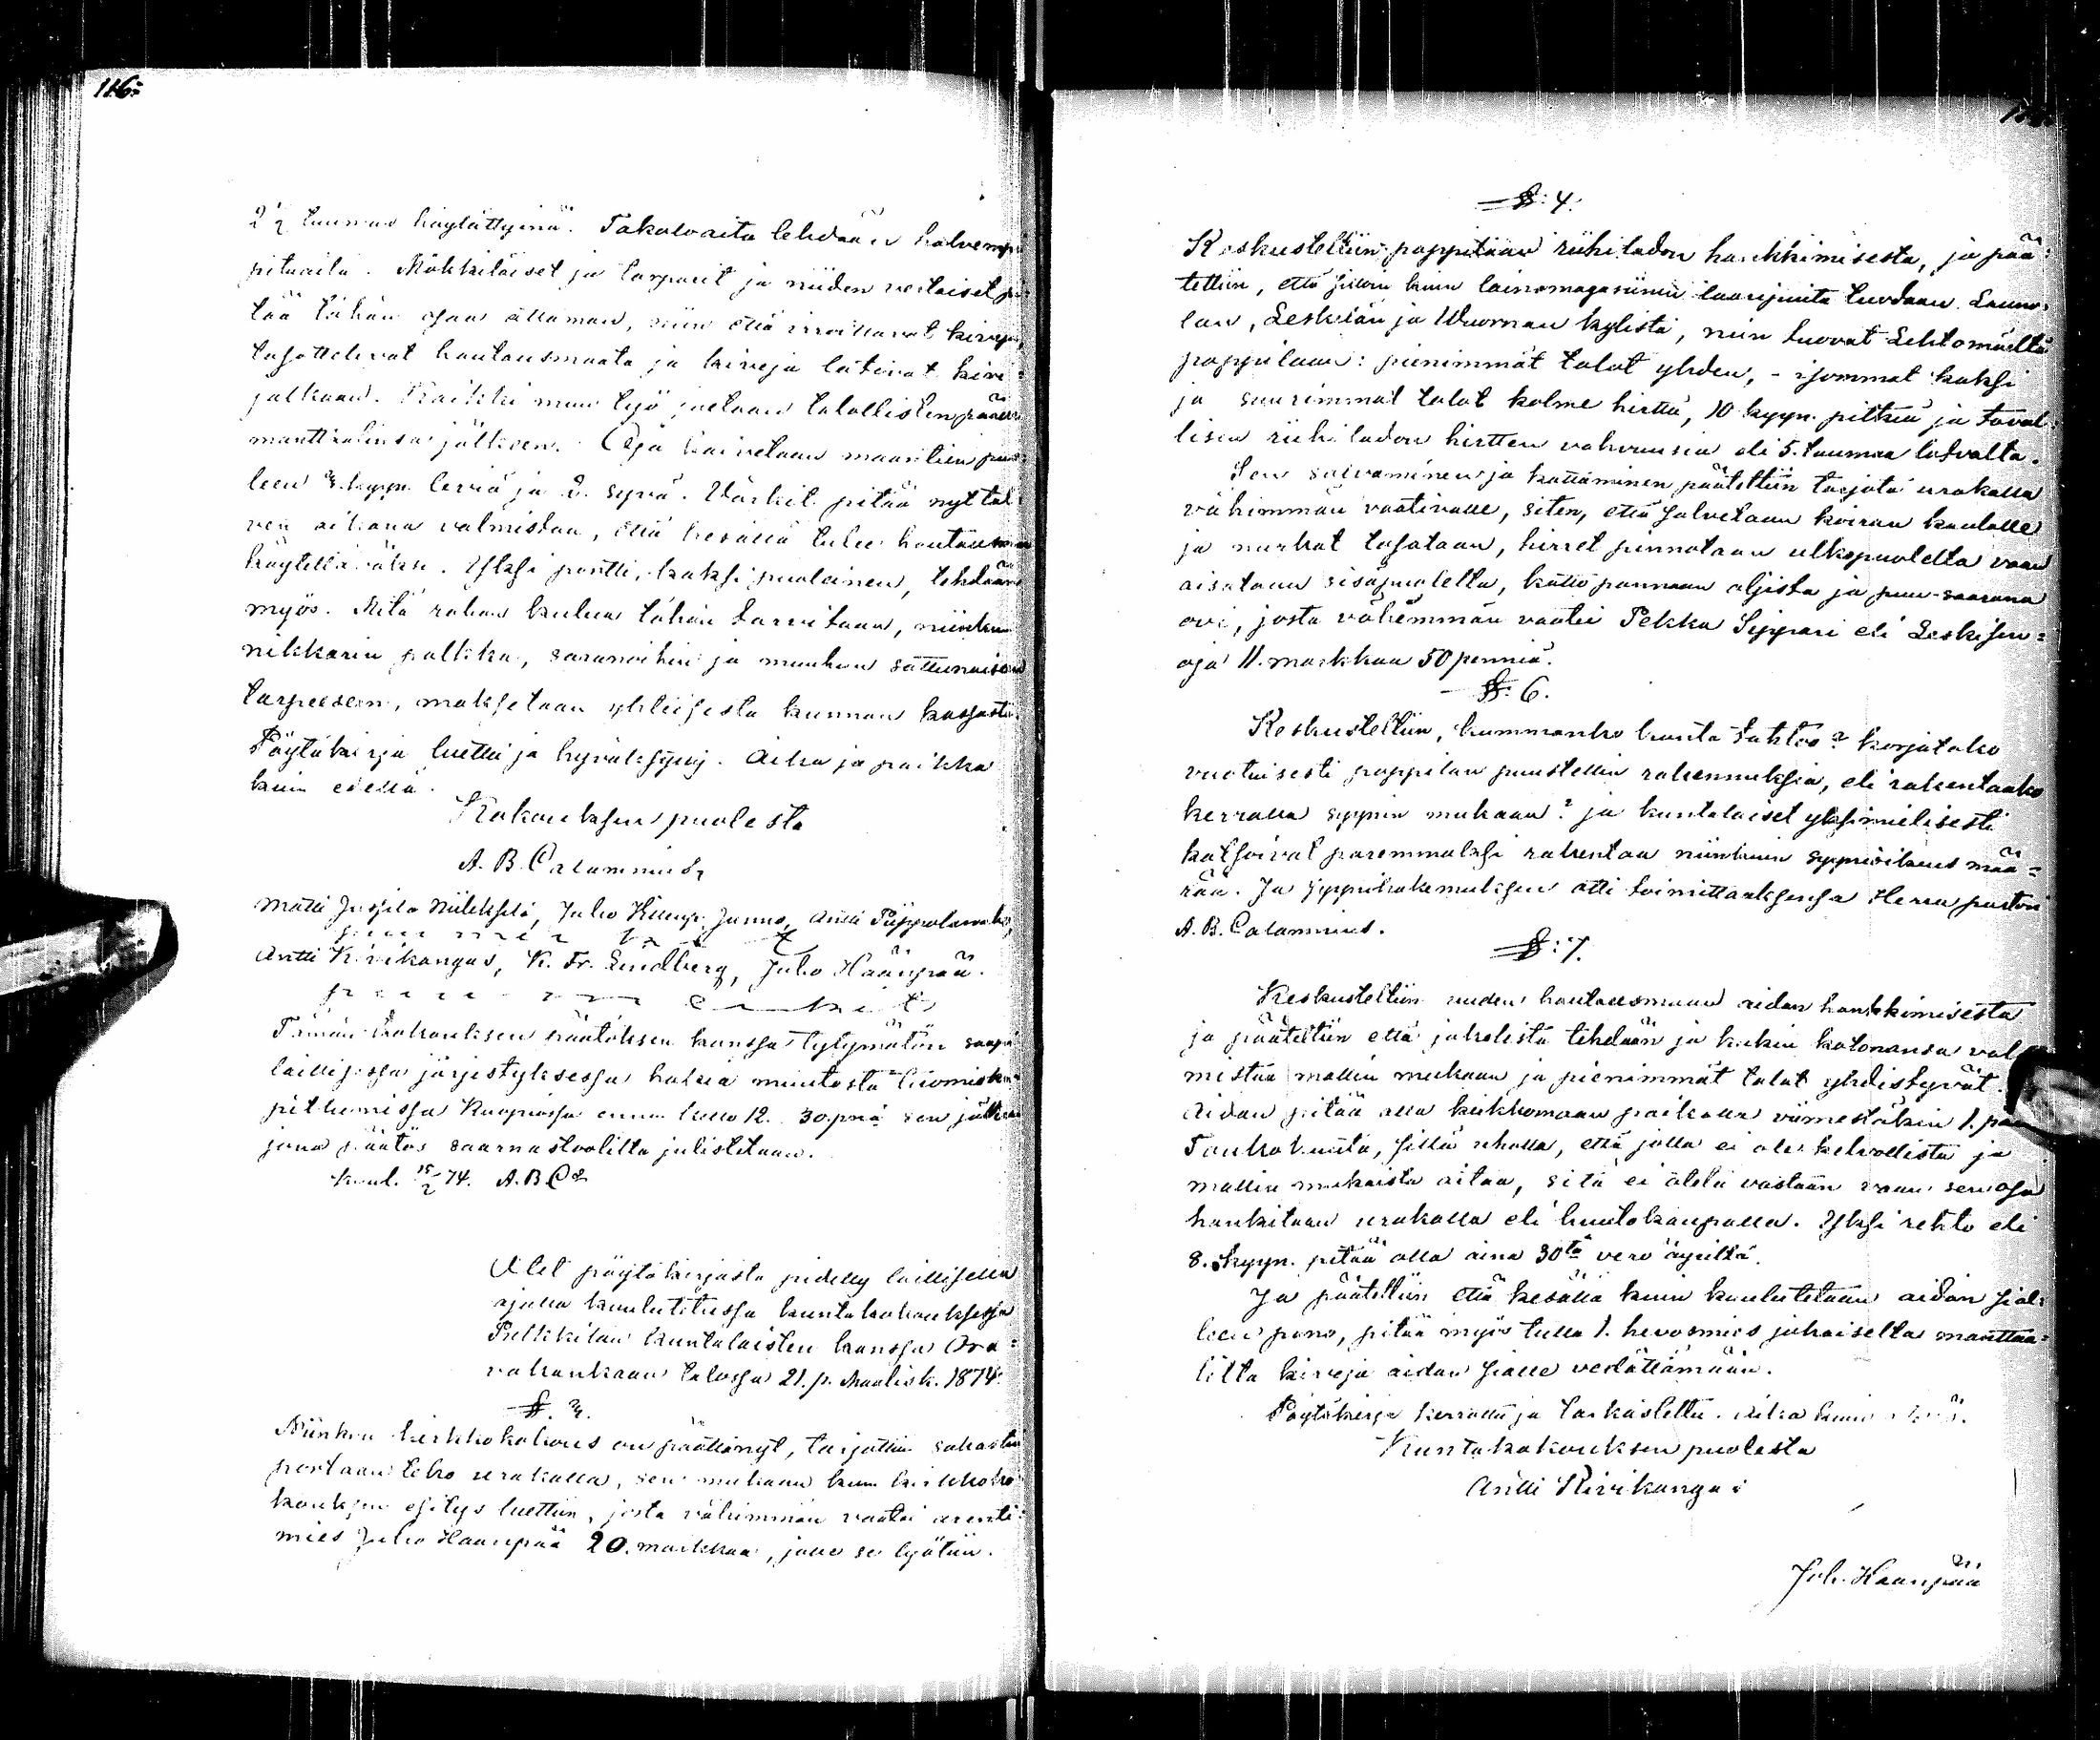 116:
2 1/2 tuumas höylättyinä. Takalaaita tehdään halvempi
pituaita. Mökkiläiset ja torparit ja niiden vertaiset pi-
tää tähän osaa ottaman, niin että irroittavat kiveja,
tasottelevat hautausmaata ja kiveja lativat kivi-
jalkaan. Kaikki muu työ jaetaan talollisten päälle
manttaalinsa jälkeen. Oja kaivetaan maantien puo-
leen 3. kypn. leviä ja 2. syvä. Värkit pitää nyt tal-
ven aikana valmistaa, että kesällä tulee hautausmaa
käytettäväksi. Yksi portti, kaksi puoleinen, tehdään
myös. Mitä rahan kulua tähän tarvitaan, niinkun
nikkarin palkka, saranoihin ja muuhun sattunaiseen
tarpeeseen, maksetaan yhteisesta kunnan kassasta.
Pöytäkirja luettu ja hyväksytty. Aika ja paikka
kuin edellä.
Kokouksen puolesta
A. B. Calamnius
Matti Jussila Niilekselä, Juho Junno, Antti Piippolanmäki,
Antti Kivikangas, K. Fr. Lindberg, Juho Haanpää.
Tämän kokouksen päätöksen kanssa tytymätön saapi
laillisessa järjestyksessä hakea muutosta
Kuopiossa ennen kello 12. 30. pnä sen jälkeen
jona päätös saarnastoolilta julistetaan.
Kuul. 15/2 74. A. B. Cs
Ulet pöytäkirjasta pidetty laillisella
ajalla kuulutetussa kuntakokouksessa
Pulkkilan kuntalaisten kanssa Ora-
vakankaan talossa 21. p. Maalisk. 1874.
§. 3.
Niinkun kirkkokokous on päättänyt, tarjottiin sakastin
portaan teko urakalla, sen mukaan kuin kirkkoko-
kouksen esitys luettiin, josta vähimmän vaatei arenti-
mies Juho Haanpää 20. markkaa, jolle se lyötiin.
§: 4.
Keskusteltiin pappilaan riihiladon hankkimisesta, ja pää-
tettiin, että silloin kuin lainamagasiinin laaripuita tuodaan Laun-
lan, Leskelän ja Wuornan kylistä, niin tuovat Lehtomäeltä
pappilaan: pienimmät talot yhden, - isommat kaksi
ja suurimmat talot kolme hirttä, 10 kypn. pitkiä ja taval-
lisen riihiladon hirtten vahvuusia eli 5. tuumaa latvalta.
Sen salvaminen ja kattaminen päätettiin tarjota urakalla
vähimmän vaativalle, siten, että salvetaan koiran kaulalle
ja nurkat tasataan, hirret pinnotaan ulkopuolelta vaan
aisataan sisäpuolelta, katto pannaan oljista ja puu-saarana
ovi, josta vähemmän vaatei Pekka Sippari eli Leskisen-
oja 11. markkaa 50 penniä.
§: 6.
Keskusteltiin, kummanko kunta tahtoo? korjatako
vuotuisesti pappilan puustellin rakennuksia, eli rakentaako
kerralla syynin mukaan? ja kuntalaiset yksimielisesti
katsoivat paremmaksi rakentaa niinkuin syynioikeus mää-
rää. Ja syynihakemuksen otti toimittaaksensa Herra pastori
A. B. Calamnius.
§: 7.
Keskusteltiin uuden hautausmaan aidan hankkimisesta
ja päätettiin että jakolista tehdään ja kukin kotonansa val-
mistaa mallin mukaan ja pienimmät talot yhdistyvät.
Aidan pitää olla kirkkomaan paikalla viimestäkin 1. päi
Toukokuuta, sillä uhalla, että jolla ei ole kelvollista ja
mallin mukaista aitaa, sitä ei oteta vastaan vaan sen osa
hankitaan urakalla eli huutokaupalla. Yksi rehto eli
8. kypn. pitää olla aina 30tä vero äyriltä.
Ja päätettiin että kesällä kuin kuulutetaan aidan sial-
leen pano, pitää myös tulla 1. hevosmies jokaiselta manttaa-
lilta kiveja aidan sialle vedättämään.
Pöytäkirja kerrattu ja tarkastettu. Aika kuin
Kuntakokouksen puolesta
Antti Kivikangas
Joh. Haanpää